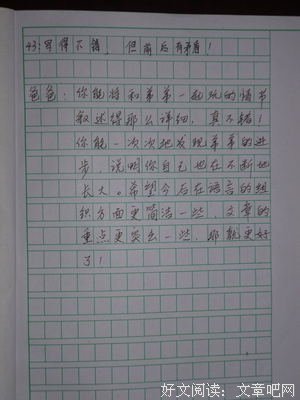 43：写得不错，但前后有矛盾！
爸爸：你能将和弟弟一起玩的情节
叙述得那么详细，真不错！
你能一次次地发现弟弟的进
步，说明你自己也在不断地
长大。希望今后在语言的组
织方面更简洁一些，文章的
重点更突出一些，那就更好
了！
好文阅读：文章吧网